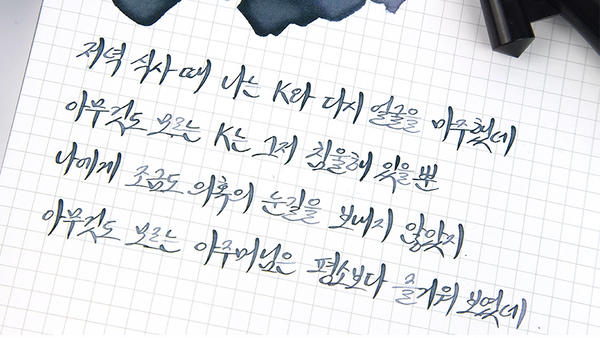 저녁 식사 때 나는 K와 다시 얼굴을 마주했네
아무것도 모르는 K는 그저 침울해 있을 뿐
나에게 조금도 의혹의 눈길을 보내지 않았지.
아무것도 모르는 아주머님은 평소보다 즐거워 보였네